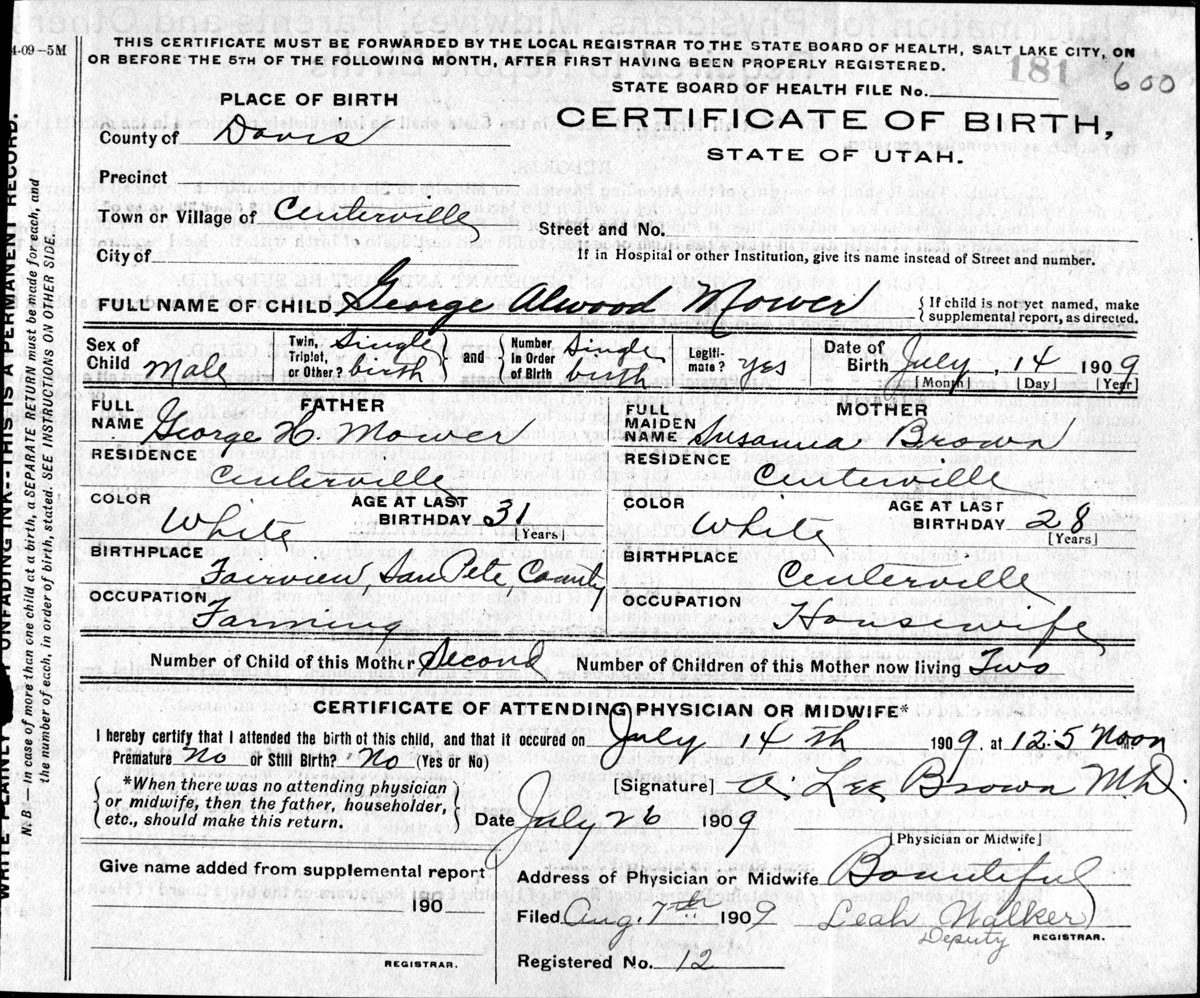 4-09-5M
THIS CERTIFICATE MUST BE FORWARDED BY THE LOCAL REGISTRAR TO THE STATE BOARD OF HEALTH, SALT LAKE CITY, ON
OR BEFORE THE 5TH OF THE FOLLOWING MONTH, AFTER FIRST HAVING BEEN PROPERLY REGISTERED.
181 600
STATE BOARD OF HEALTH FILE No.
PLACE OF BIRTH
CERTIFICATE OF BIRTH,
STATE OF UTAH.
County of Davis
Precinct
Town or Village of Centerville
Street and No.
City of
If in Hospital or other Institution, give its name instead of Street and number.
FULL NAME OF CHILD George Alwood Mower
{If child is not yet named, make
supplemental report, as directed.
Sex of Child Male
Twin, Triplet, or Other? Single birth
and
Number in Order of Birth Single birth
Legitimate? yes
Date of Birth July, 14 1909
[Month] [Day] [Year]
FATHER
FULL NAME George H. Mower
RESIDENCE
Centerville
COLOR White
AGE AT LAST BIRTHDAY 31
[Years]
BIRTHPLACE
Fairview, San Pete, County
OCCUPATION
Farming
MOTHER
FULL MAIDEN NAME Susanna Brown
RESIDENCE
Centerville
COLOR White
AGE AT LAST BIRTHDAY 28
[Years]
BIRTHPLACE
Centerville
OCCUPATION
Housewife
Number of Child of this Mother Second Number of Children of this Mother now living Two
CERTIFICATE OF ATTENDING PHYSICIAN OR MIDWIFE*
I hereby certify that I attended the birth of this child, and that it occured on July 14th 1909. at 12:5 Noon
Premature No or Still Birth? No (Yes or No)
*When there was no attending physician
or midwife, then the father, householder,
etc., should make this return.
[Signature] A. Lee Brown M.D.
Date July 26 1909
[Physician or Midwife]
Give name added from supplemental report
190
REGISTRAR.
Address of Physician or Midwife Bountiful
Filed Aug. 7th 1909 Leah Walker
Deputy REGISTRAR.
Registered No. 12
WRITE PLAINLY UNFADING INK---THIS IS A PERMANENT RECORD.
N. B.—In case of more than one child at a birth, a SEPARATE RETURN must be made for each, and
the number of each, in order of birth, stated. SEE INSTRUCTIONS ON OTHER SIDE.